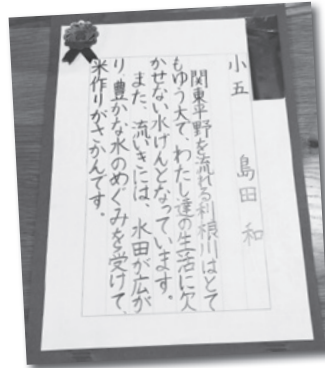 小五　島田和
関東平野を流れる利根川はとて
もゆう大で、わたし達の生活に欠
かせない水げんとなっています。
また、流いきには、水田が広が
り、豊かな水のめぐみを受けて、
米作りがさかんです。